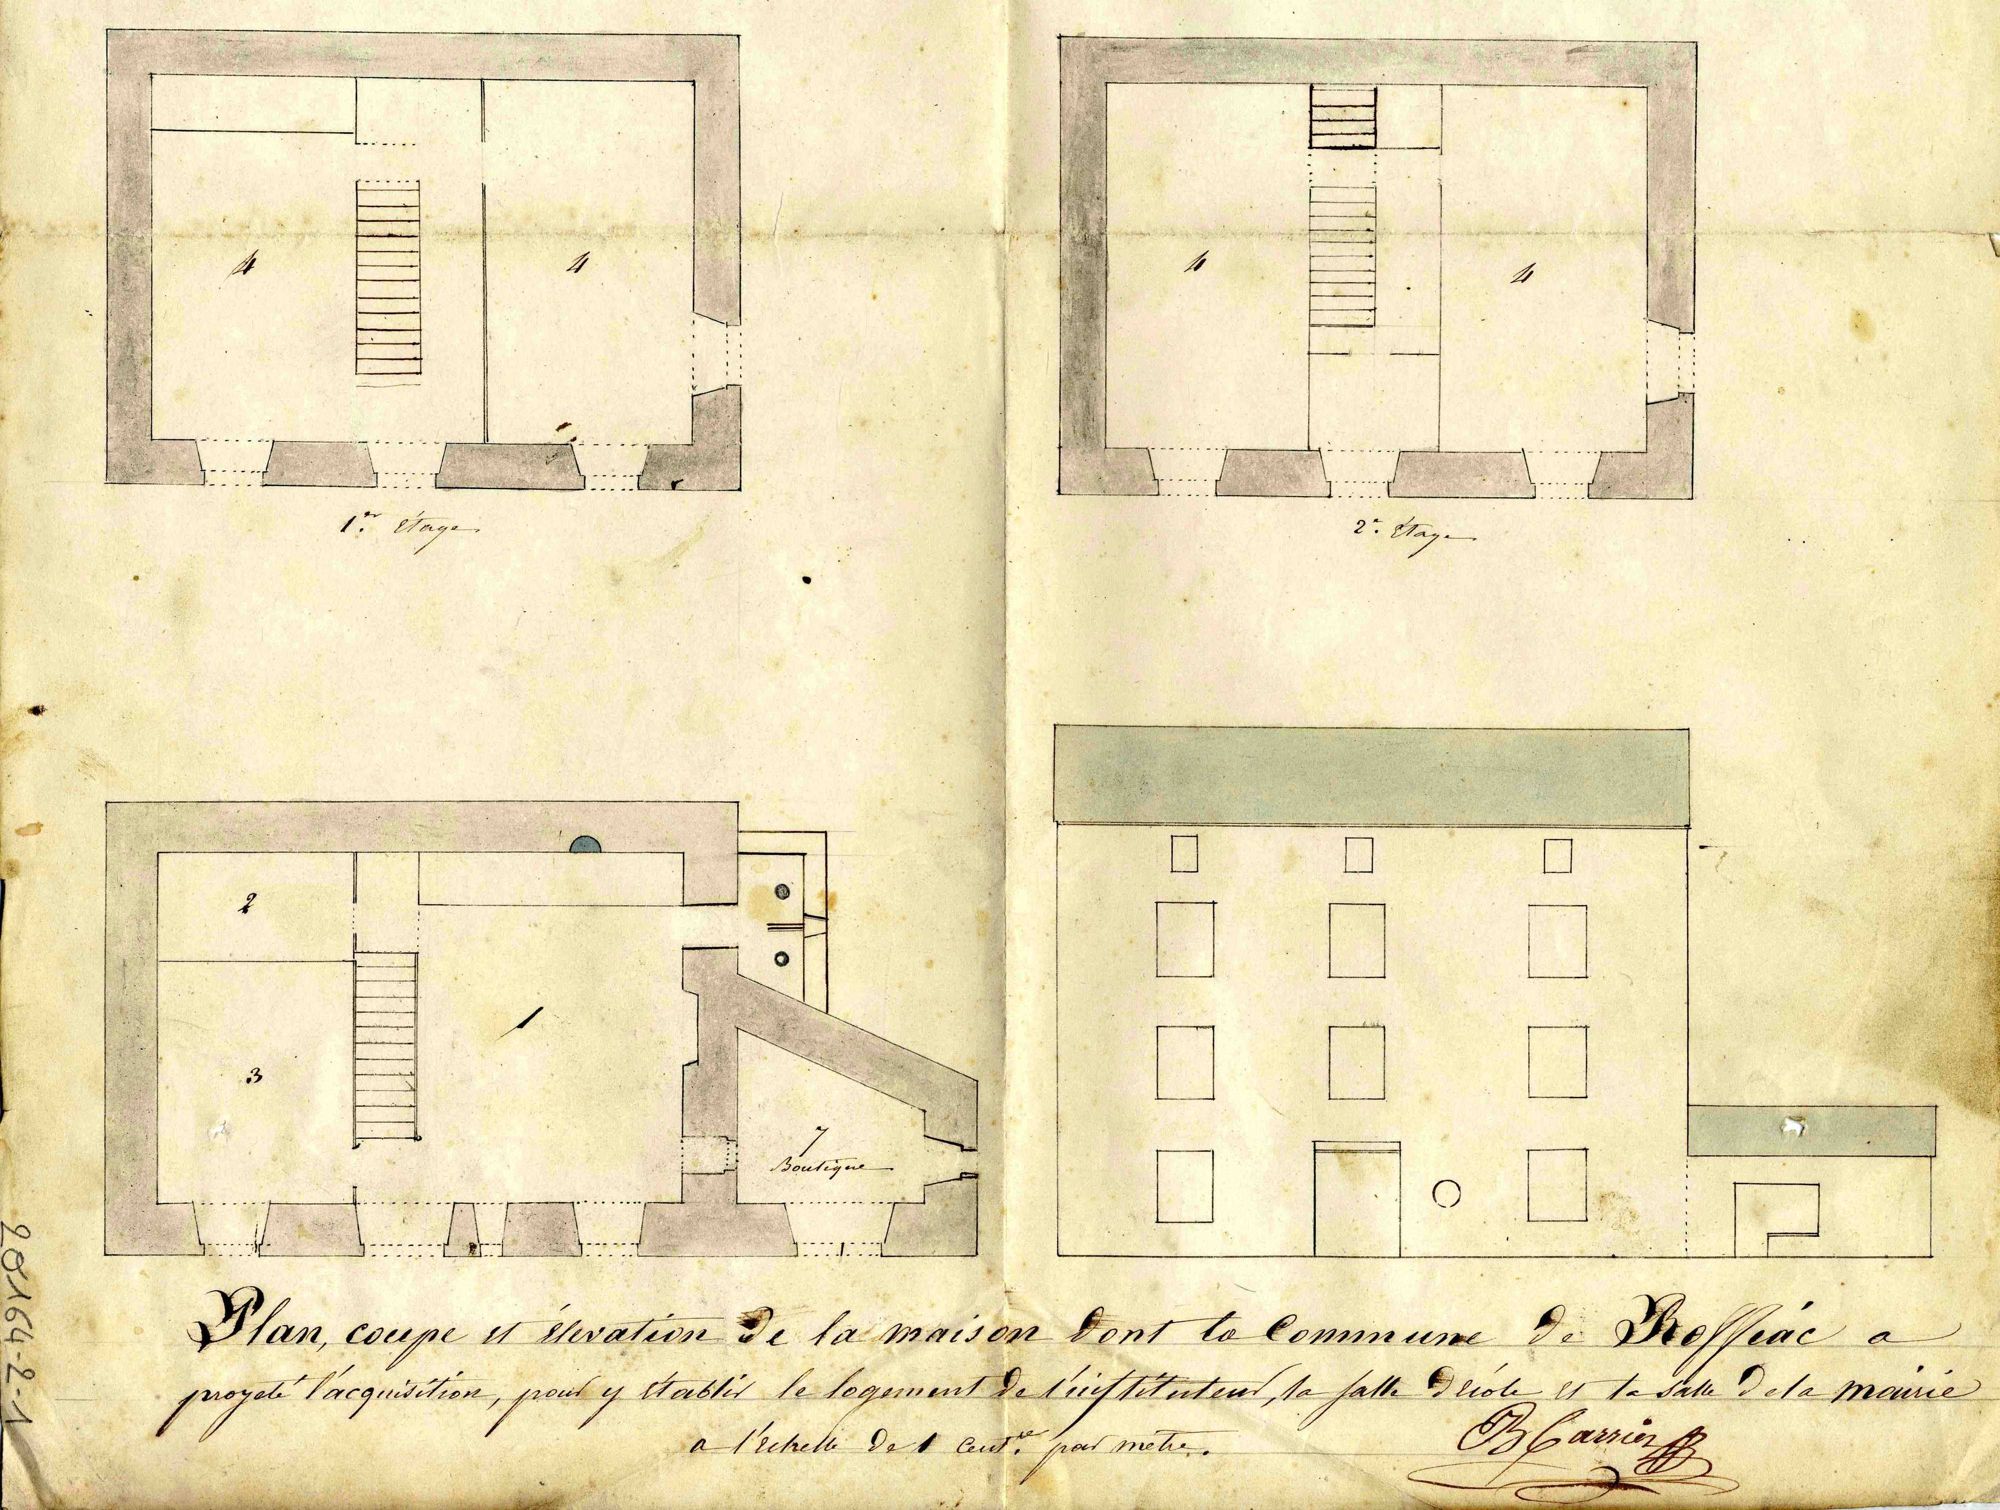 4
4
1er. étage
4
4
2e. étage
2
3
1
7
Boutique
Plan, coupe et élevation de la maison dont la Commune de Roffiac a
projeté l'acquisition, pour y établir le logement de l'instituteur, la salle d'école et la salle de la mairie
a l'échelle de 1 centre. par mètre.
B Carrier
20164-2-1